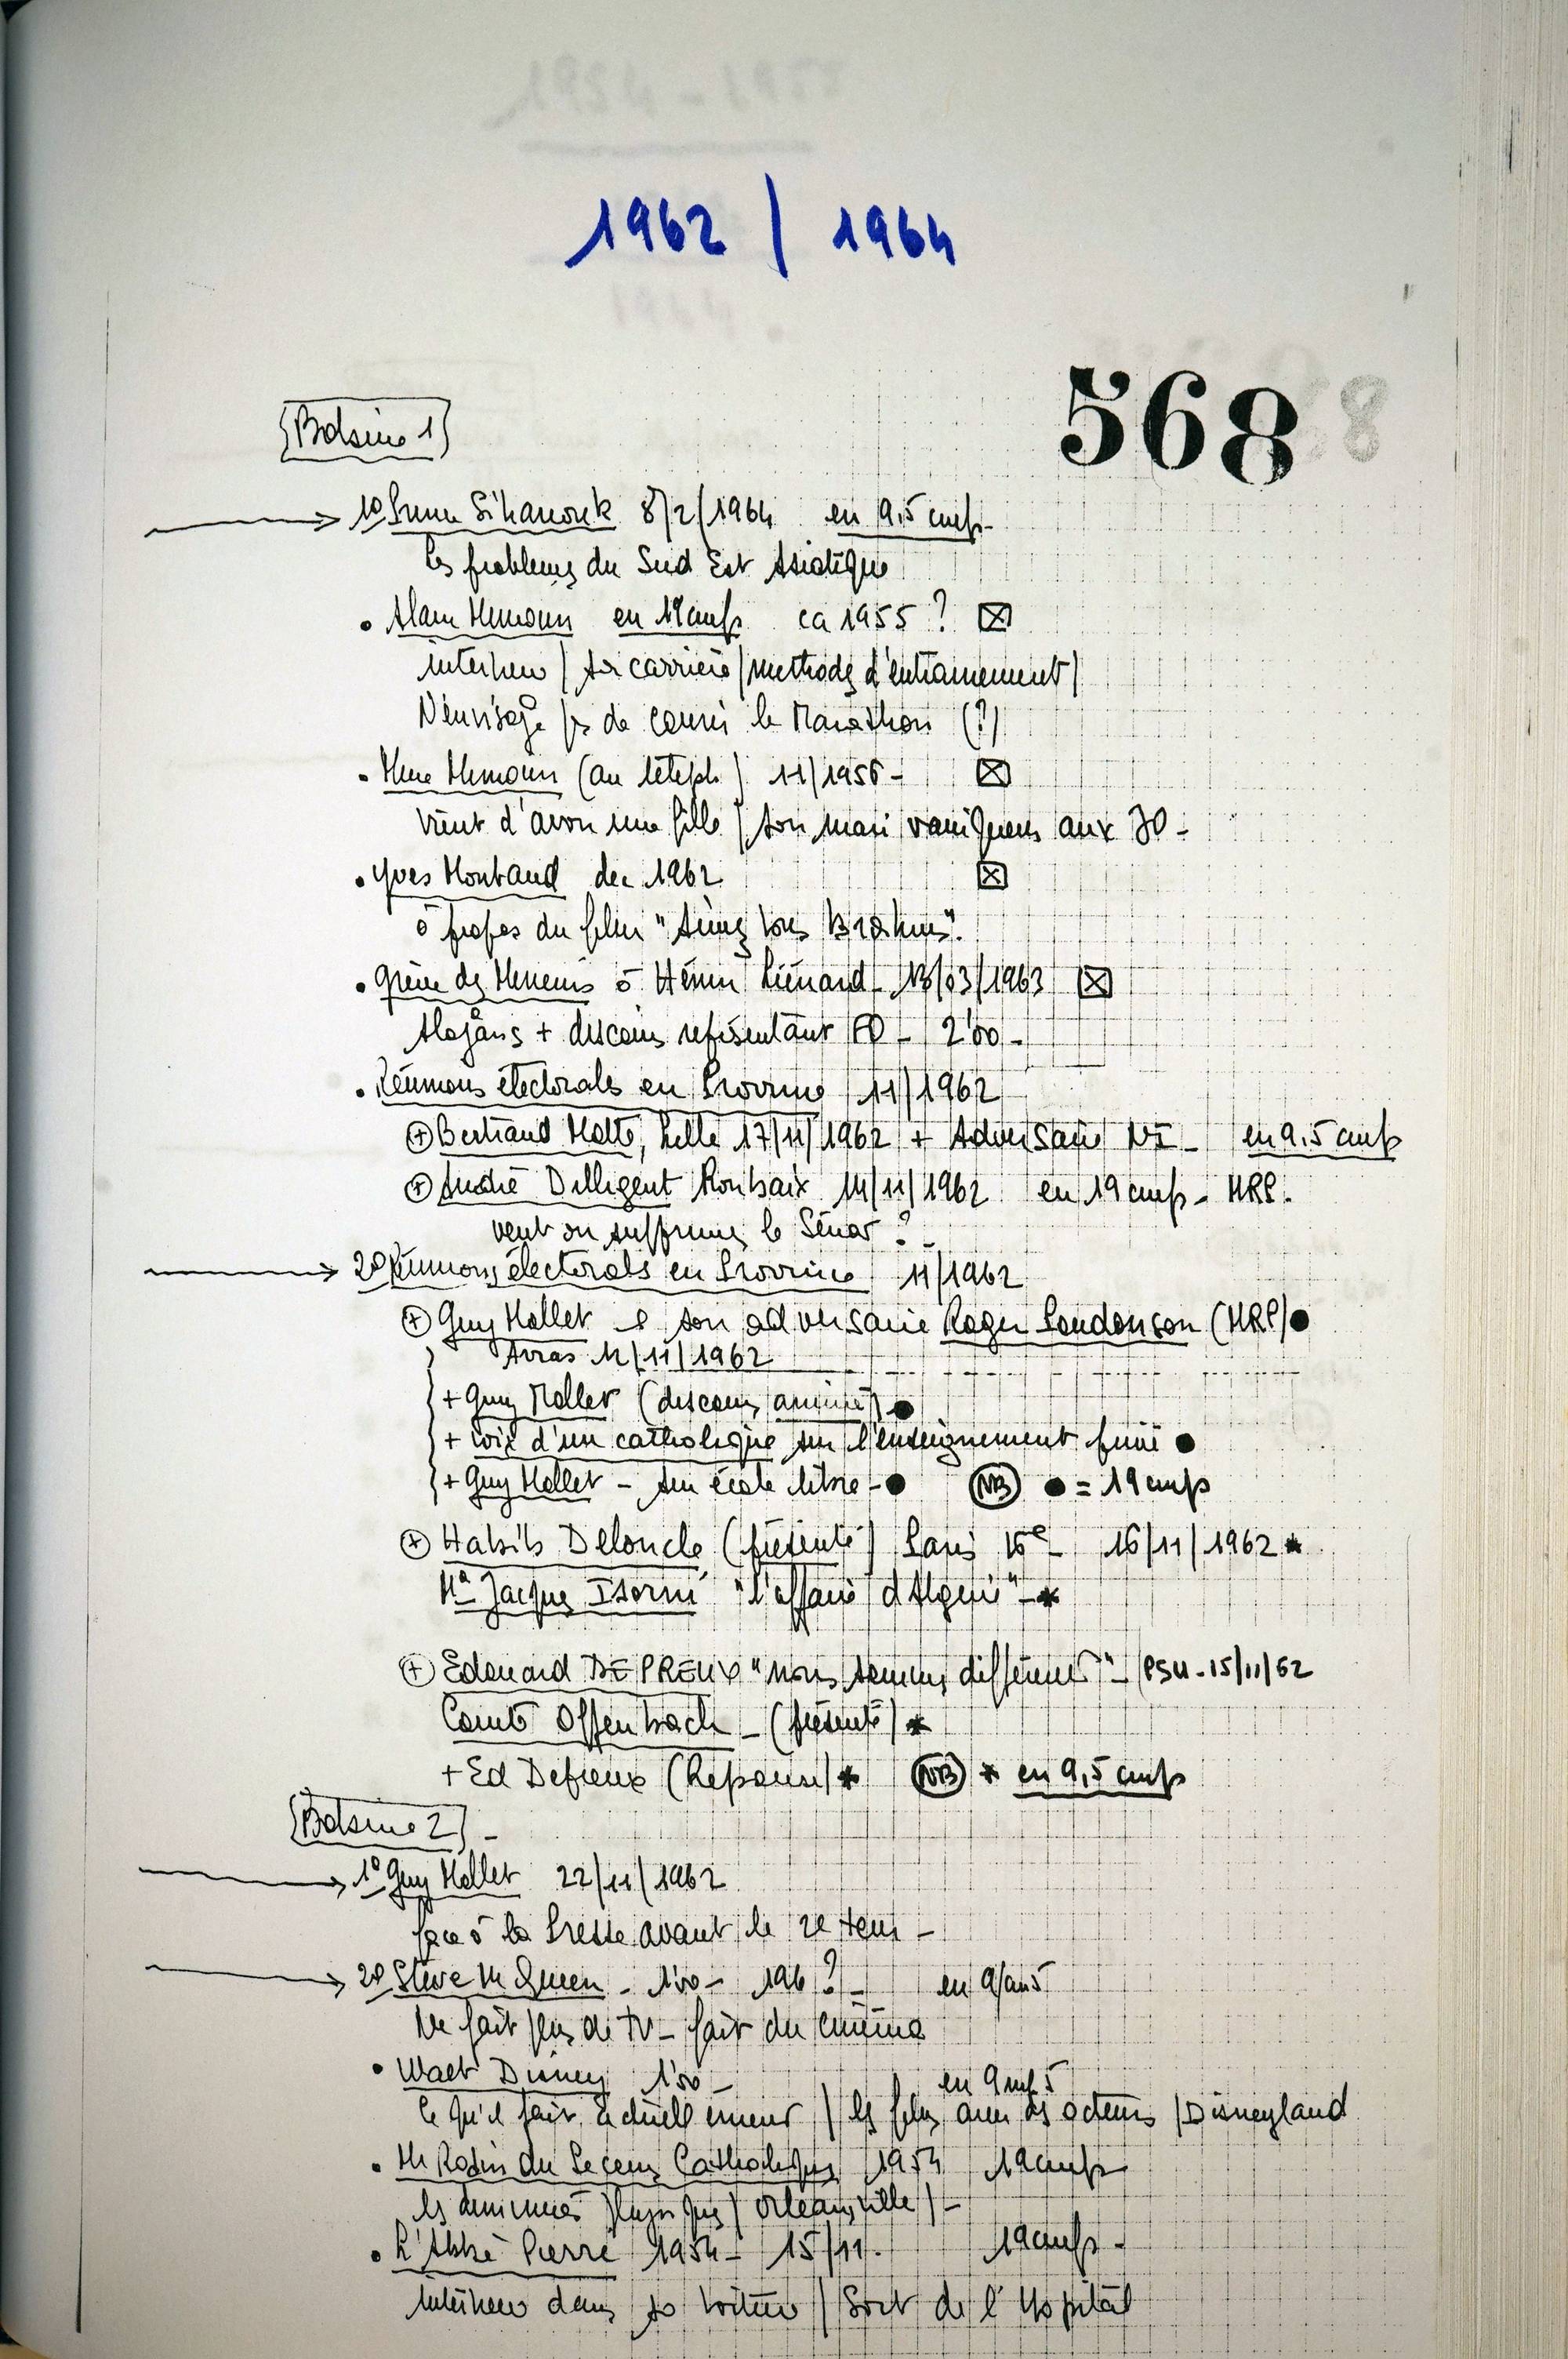 1962 / 1964
568
Bobine 1
1º Prince Sihanouk 8/2/1964 en 9,5 cm/s
les problèmes du Sud Est Asiatique
• Alain Mimoun en 19 cm/s ca 1955 ?
interview / sa carrière / méthodes d'entrainement /
N'envisage ps de courir le Marathon (?)
• Mme Mimoun (au téleph) 11/1956 -
vient d'avoir une fille / son mari vainqueur aux JO -
• Yves Montand dec 1962
à propos du film "Aimez Vous Brahms".
• Grève des Mineurs à Hénin Liénard - 13/03/1963
Slogans + discours représentant FO - 2'00 -
• Réunions électorales en Province 11/1962
+ Bertrand Motte, Lille 17/11/1962 + Adversaire N°I - en 9,5 cm/s
+ André Dilligent Roubaix 14/11/1962 en 19 cm/s - MRP.
veut on supprimer le Sénat ? -
2º Réunions électorales en Province 11/1962
+ Guy Mollet et son adversaire Roger Poudonson (MRP) ●
Arras 12/11/1962
+ Guy Mollet (discours animé) ●
+ voix d'un catholique sur l'enseignement privé ●
+ Guy Mollet - sur école libre - ● NB ● = 19 cm/s
+ Habib Deloncle (présenté) Paris 16e - 16/11/1962 *
Me Jacques Isorni "l'affaire d'Algérie" - *
+ Edouard DEPREUX "nous sommes différents" - (PSU - 15/11/62
Comte Offenbach - (présenté) *
+ Ed Depreux (Réponse) * NB * en 9,5 cm/s
Bobine 2 -
1º Guy Mollet 22/11/1962
face à la Presse avant le 2e tour -
2º Steve Mc Queen - 1'00 - 196 ? - en 9 cm 5
Ne fait plus de TV - fait du cinéma
• Walt Disney 1'00 - en 9 cm/s 5
Ce qu'il fait actuellement / les films avec des acteurs / Disneyland
• Mr Rodin du Secours Catholique 1954 19 cm/s
les Orléansville / -
• L'Abbé Pierre 1954 - 15/11. 19 cm/s -
interview dans sa voiture / Sort de l'Hopital